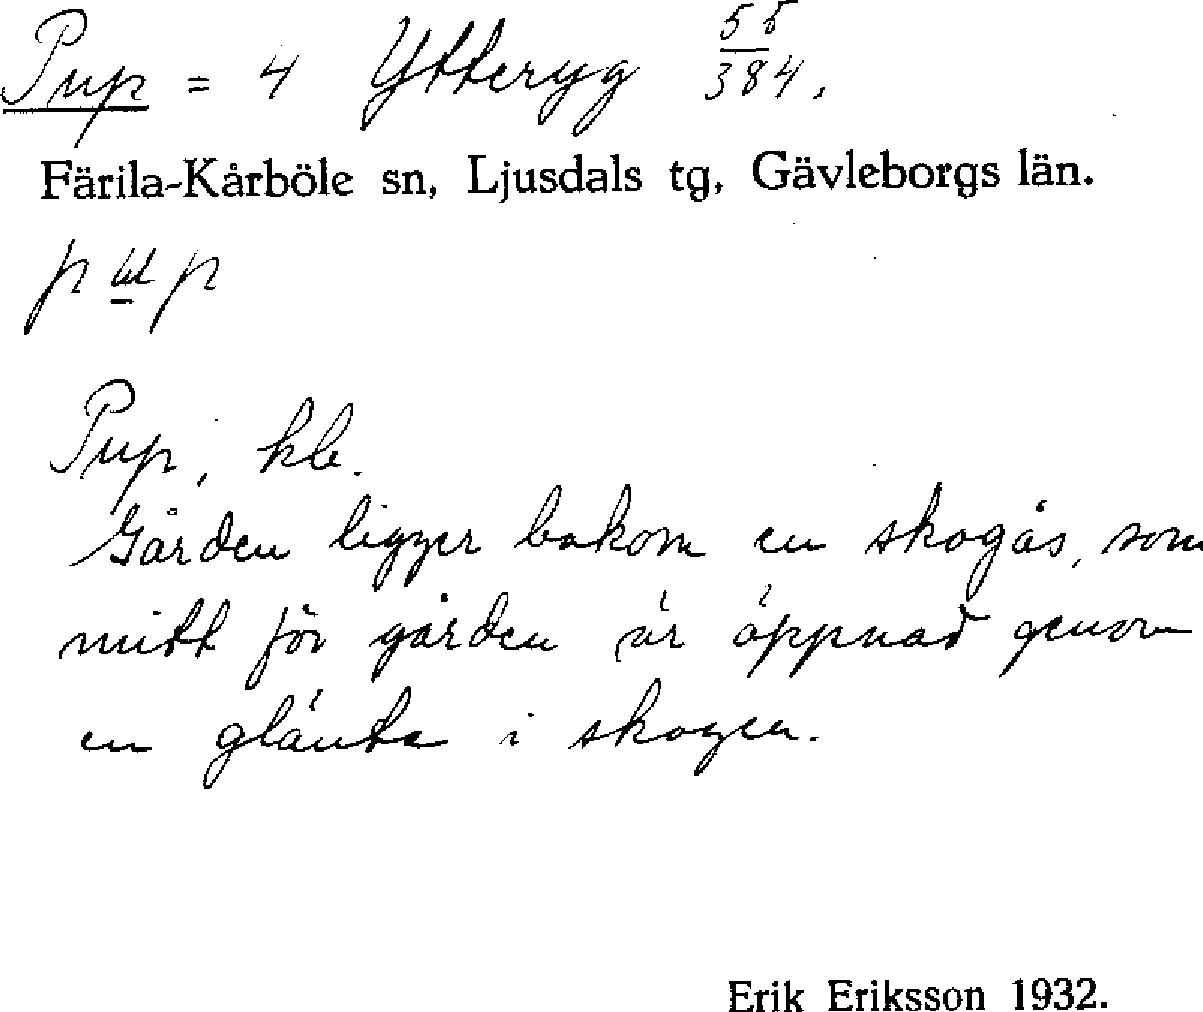 Pup = 4 Ytteryg 55/384.
Färila-Kårböle sn, Ljusdals tg, Gävleborgs län.
Pup, hle.
Gården ligger bakom en skogås, som
mitt för gården är öppnad genom
en glänta i skogen.
Erik Eriksson 1932.